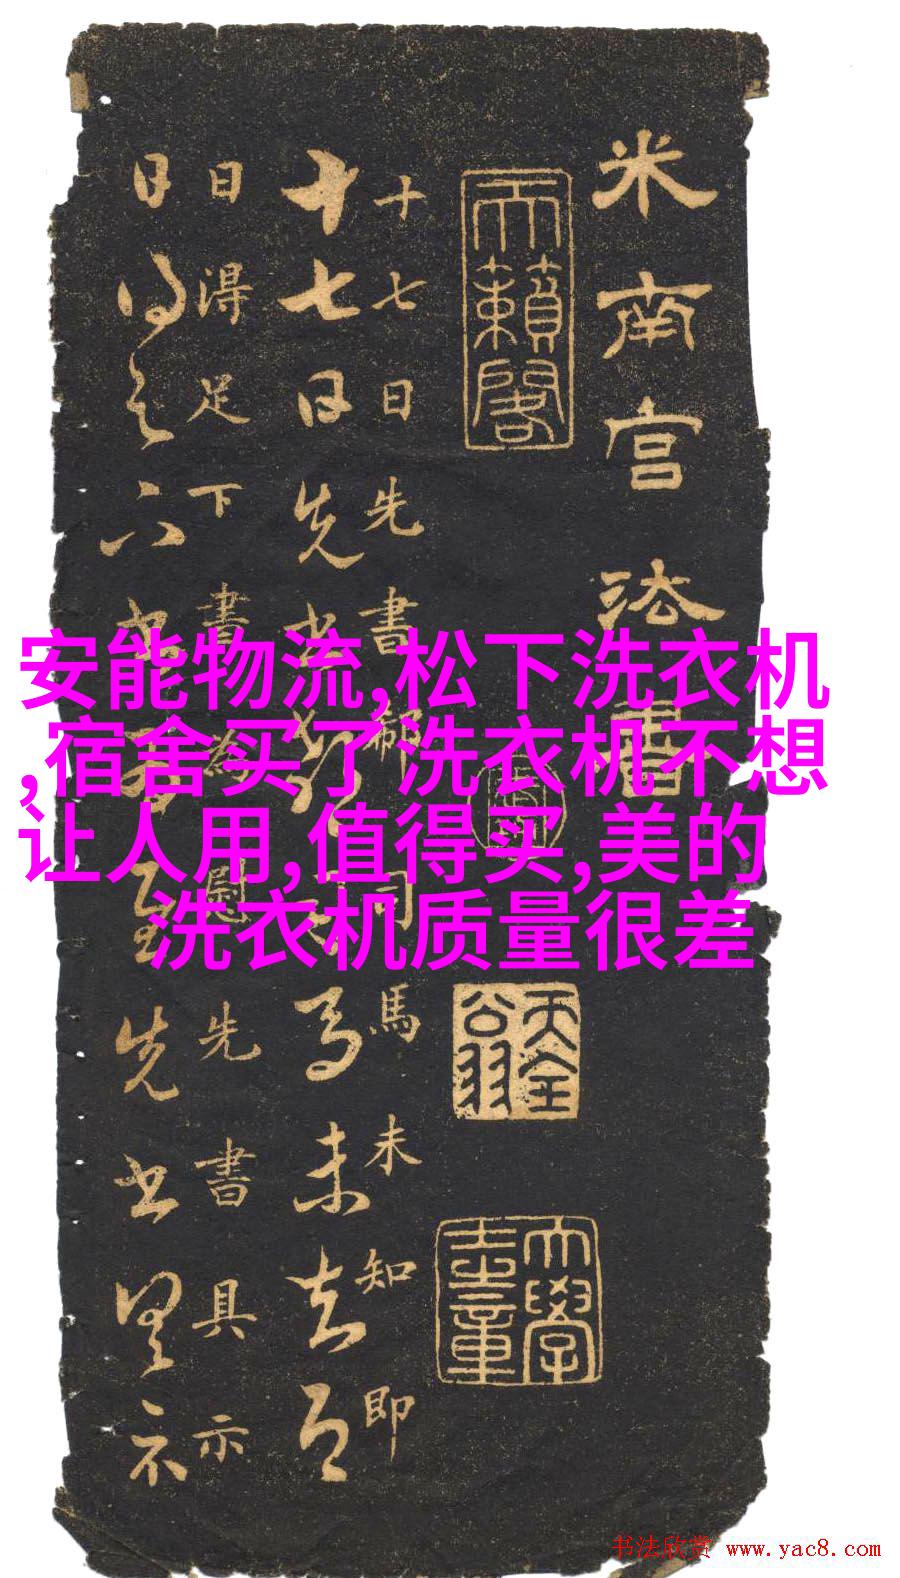 米南宫法書
天籟閣
十七日先書郗司馬未知即
十七日先書郗司馬未去即
日得足下書為慰先書具示
日得足下書為慰先書具示
安能物流,松下洗衣机
,宿舍买了洗衣机不想
让人用,值得买,美的
洗衣机质量很差
书法欣赏 www.yac8.com